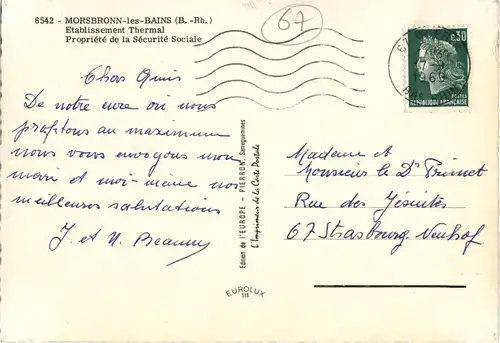 6542 - MORSBRONN-les-BAINS (B.-Rh.)
Etablissement Thermal
Propriété de la Sécurité Sociale
67
0,30
POSTES
REPUBLIQUE FRANÇAISE
1969
Chers Amis
De notre cure ou nous
profitons au maximum
nous vous envoyons mon
mari et moi-même nos
meilleures salutations
J. et N.
Madame et
Monsieur le Dr
Rue des Jésuites
67 Strasbourg-Neuhof
Edition de l'EUROPE - PIERRON, Sarreguemines
L'Imprimeur de la Carte Postale
EUROLUX